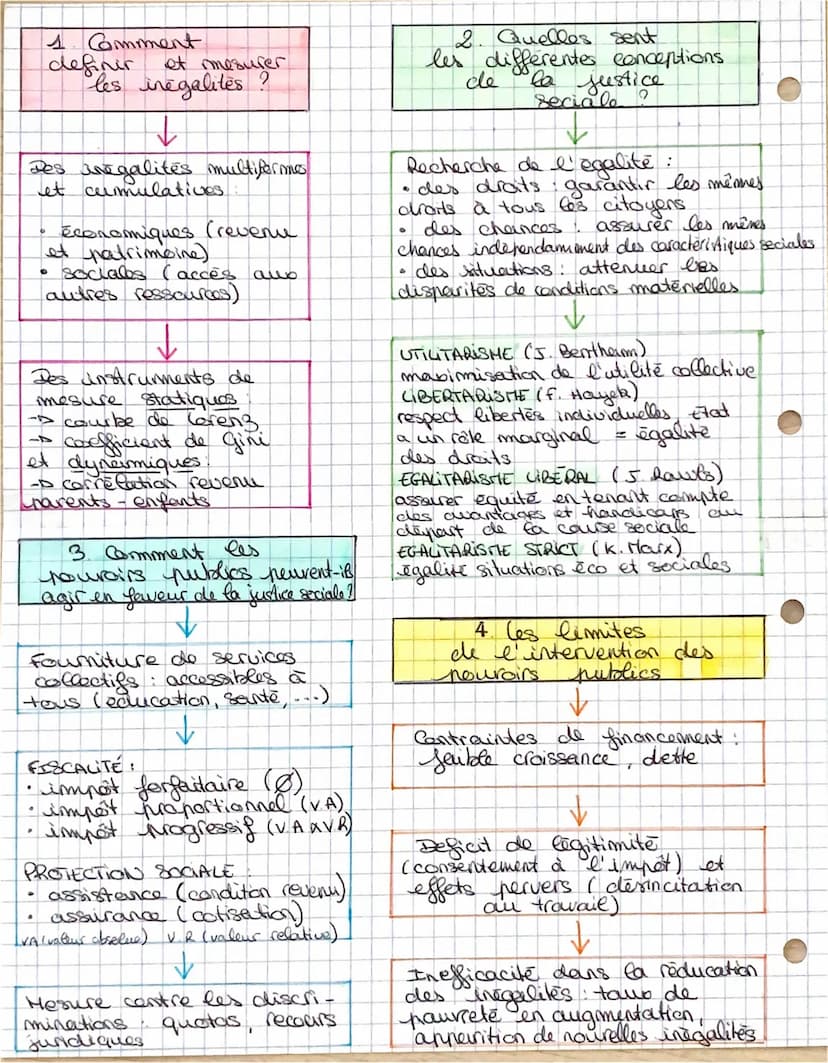 1. Comment
définir et mesurer
les inégalités ?
Des inégalités multiformes
et cumulatives :
• économiques (revenu
et patrimoine)
• sociales (accès aux
autres ressources)
Des instruments de
mesure statiques :
→ courbe de Lorenz
→ coefficient de Gini
et dynamiques :
→ corrélation revenu
parents - enfants
2. Quelles sont
les différentes conceptions
de la justice
sociale ?
Recherche de l'égalité :
• des droits : garantir les mêmes
droits à tous les citoyens
• des chances : assurer les mêmes
chances indépendamment des caractéristiques sociales
• des situations : attenuer les
disparités de conditions matérielles
UTILITARISME (J. Bentham)
maximisation de l'utilité collective
LIBERTARISME (F. Hayek)
respect libertés individuelles, état
a un rôle marginal = égalité
des droits
EGALITARISME LIBÉRAL (J. Rawls)
assurer équité en tenant compte
des avantages et handicaps au
départ de la course sociale
EGALITARISME STRICT (K. Marx)
égalité situations éco et sociales
3. Comment les
pouvoirs publics peuvent-ils
agir en faveur de la justice sociale ?
Fourniture de services
collectifs : accessibles à
tous (éducation, santé, ...)
FISCALITÉ :
• impôt forfaitaire (Ø)
• impôt proportionnel (VA)
• impôt progressif (VA & VR)
PROTECTION SOCIALE :
• assistance (condition revenu)
• assurance (cotisation)
VA (valeur absolue) V.R (valeur relative)
Mesure contre les discri-
minations : quotas, recours
juridiques
4. Les limites
de l'intervention des
pouvoirs publics
Contraintes de financement :
faible croissance, dette
Déficit de légitimité
(consentement à l'impôt) et
effets pervers (désincitation
au travail)
Inefficacité dans la réducation
des inégalités : taux de
pauvreté en augmentation,
apparition de nouvelles inégalités